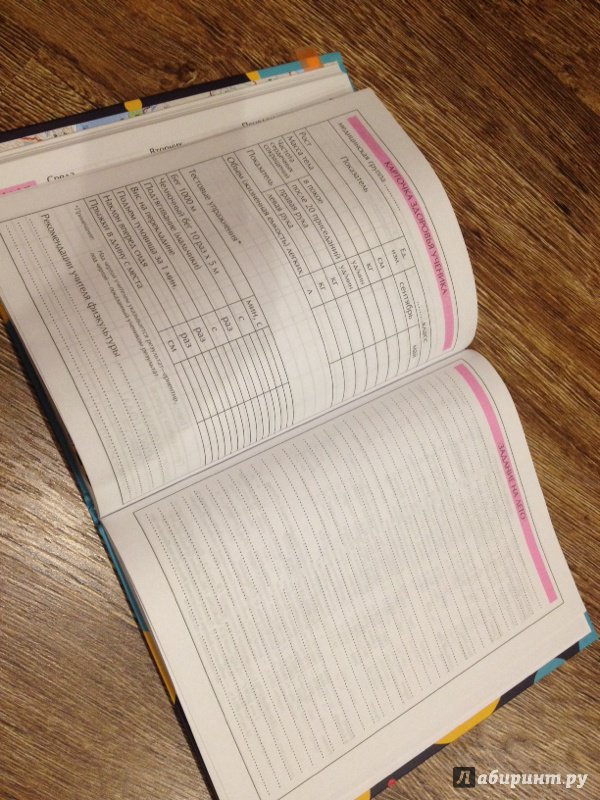 Среда
Вторник
КАРТОЧКА ЗДОРОВЬЯ УЧЕНИКА
медицинская группа класс
Показатель
Ед. изм.
сентябрь
май
Рост
см
Масса тела
кг
Частота сердечных сокращений
в покое
уд/мин
после 20 приседаний
уд/мин
Показатель
правая рука
кг
левая рука
кг
Объем (жизненная емкость) легких
л
Тестовые упражнения*
Бег 1000 м
мин, с
Челночный бег 10 раз х 5 м
с
Подтягивание (мальчики)
раз
Вис на перекладине
с
Подъем туловища за 1 мин
раз
Наклон вперед сидя
Прыжки в длину с места
см
*Примечание:
Рекомендации учителя физкультуры
ЗАДАНИЕ НА ЛЕТО
Лабиринт.ру